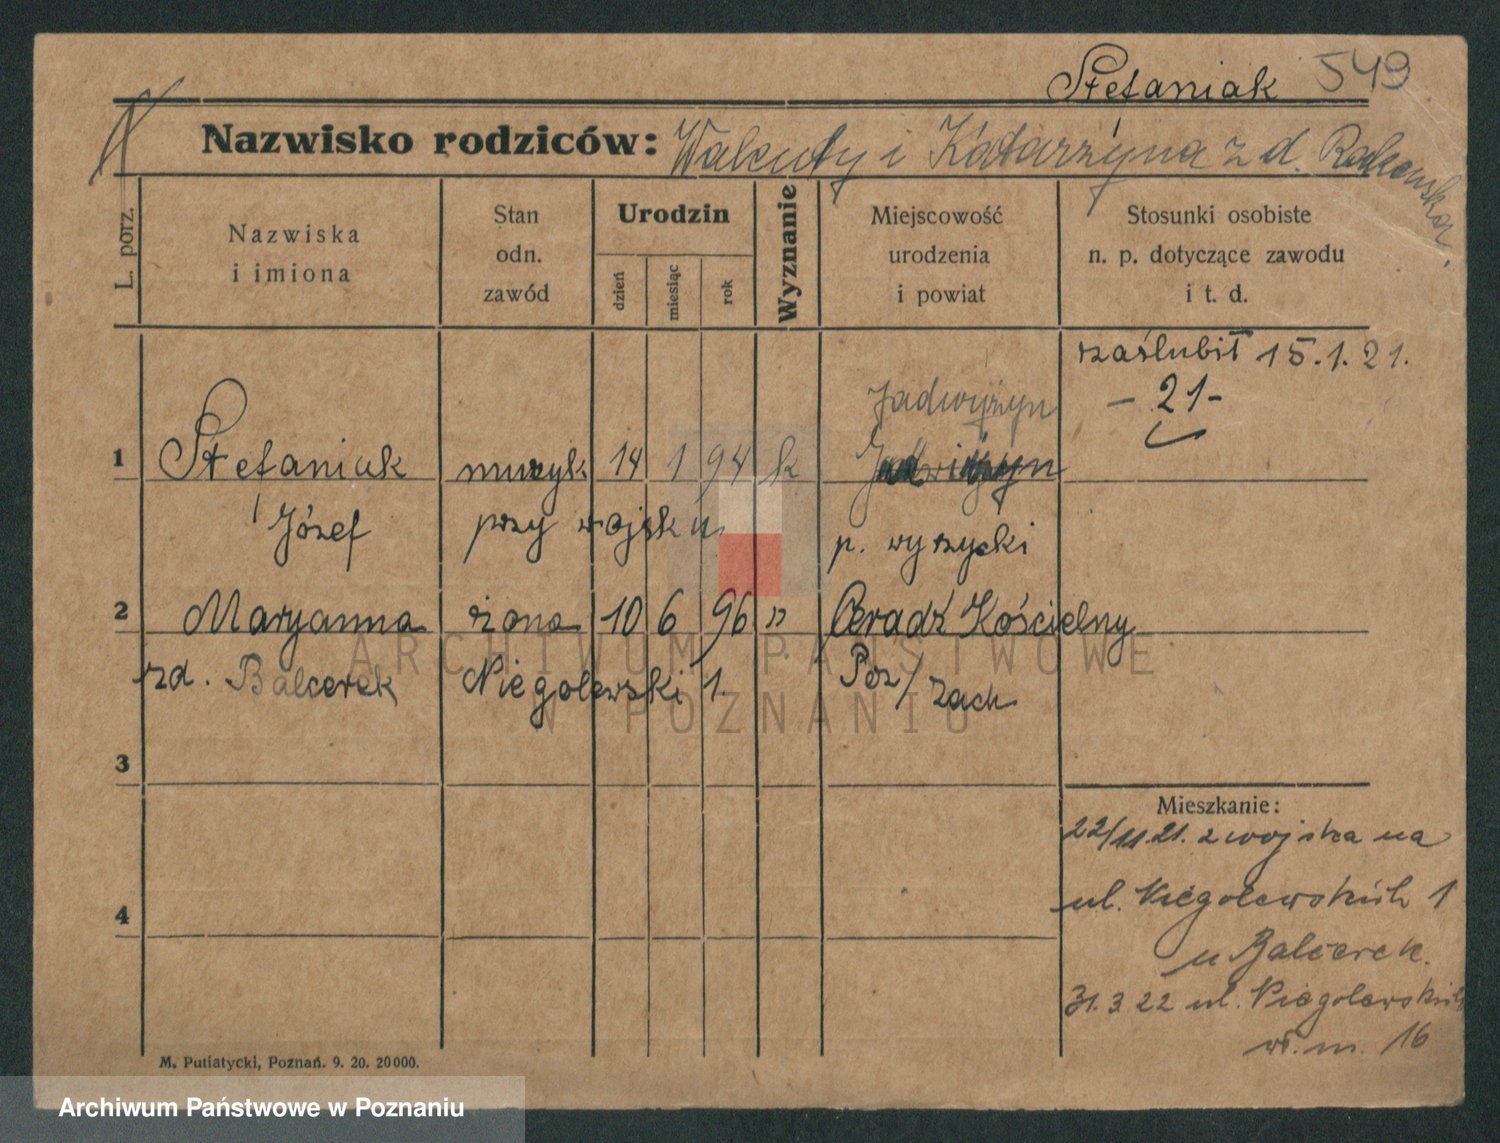 Stefaniak 549
Nazwisko rodziców: Walenty i Katarzyna z d.
L. porz.
Nazwiska
i imiona
Stan
odn.
zawód
Urodzin
dzień
miesiąc
rok
Wyznanie
Miejscowość
urodzenia
i powiat
Stosunki osobiste
n. p. dotyczące zawodu
i t. d.
zaślubił 15.1.21.
Jadwiżyn - 21 -
1 Stefaniak muzyk 14 1 94 k Jadwiżyn
Józef przy wojsku p. wyrzycki
2 Maryanna żona 10 6 96 " Ceradź Kościelny
zd. Balcerek Niegolewski 1. Poz/zach
ARCHIWUM PAŃSTWOWE
W POZNANIU
3
Mieszkanie:
22/11.21. z wojska na
ul. Niegolewskich 1
4
u Balcerek.
31.3.22 ul. Niegolewskich
wł. m. 16
M. Putiatycki, Poznań. 9. 20. 20000.
Archiwum Państwowe w Poznaniu